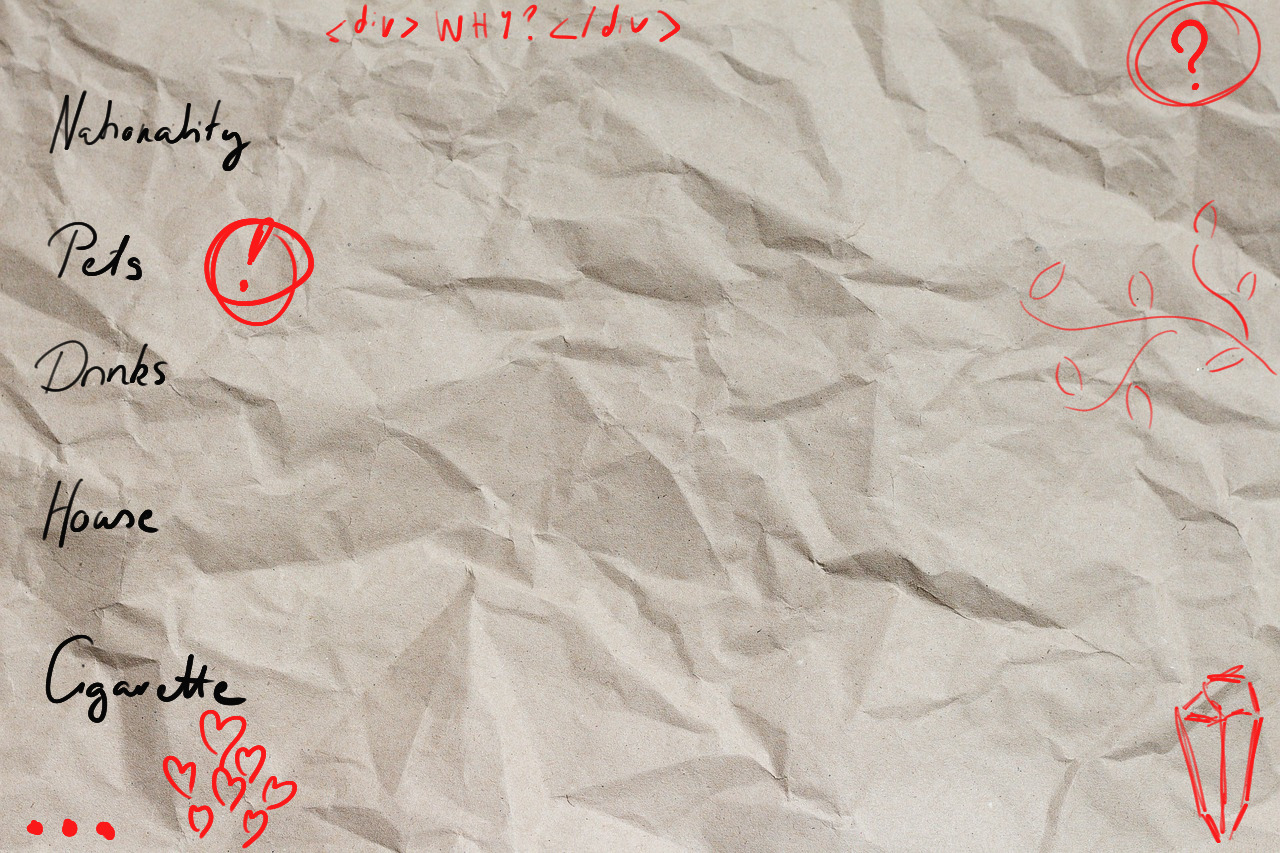 <div> WHY? </div>
?
Nationality
Pets
!
Drinks
House
Cigarette
...